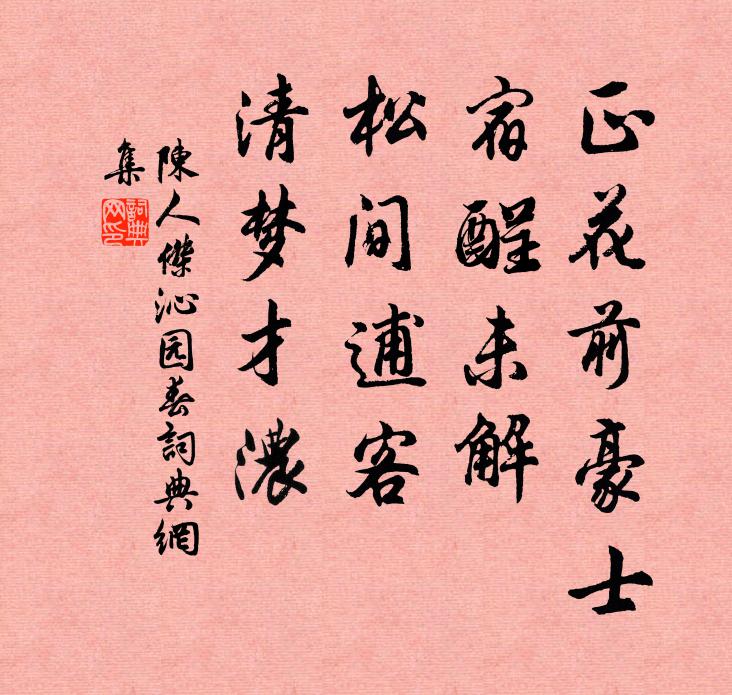 正花前豪士
宿酲未解
松间逋客
清梦才濃
陳人傑沁园春詞典網
集
詞典
网印